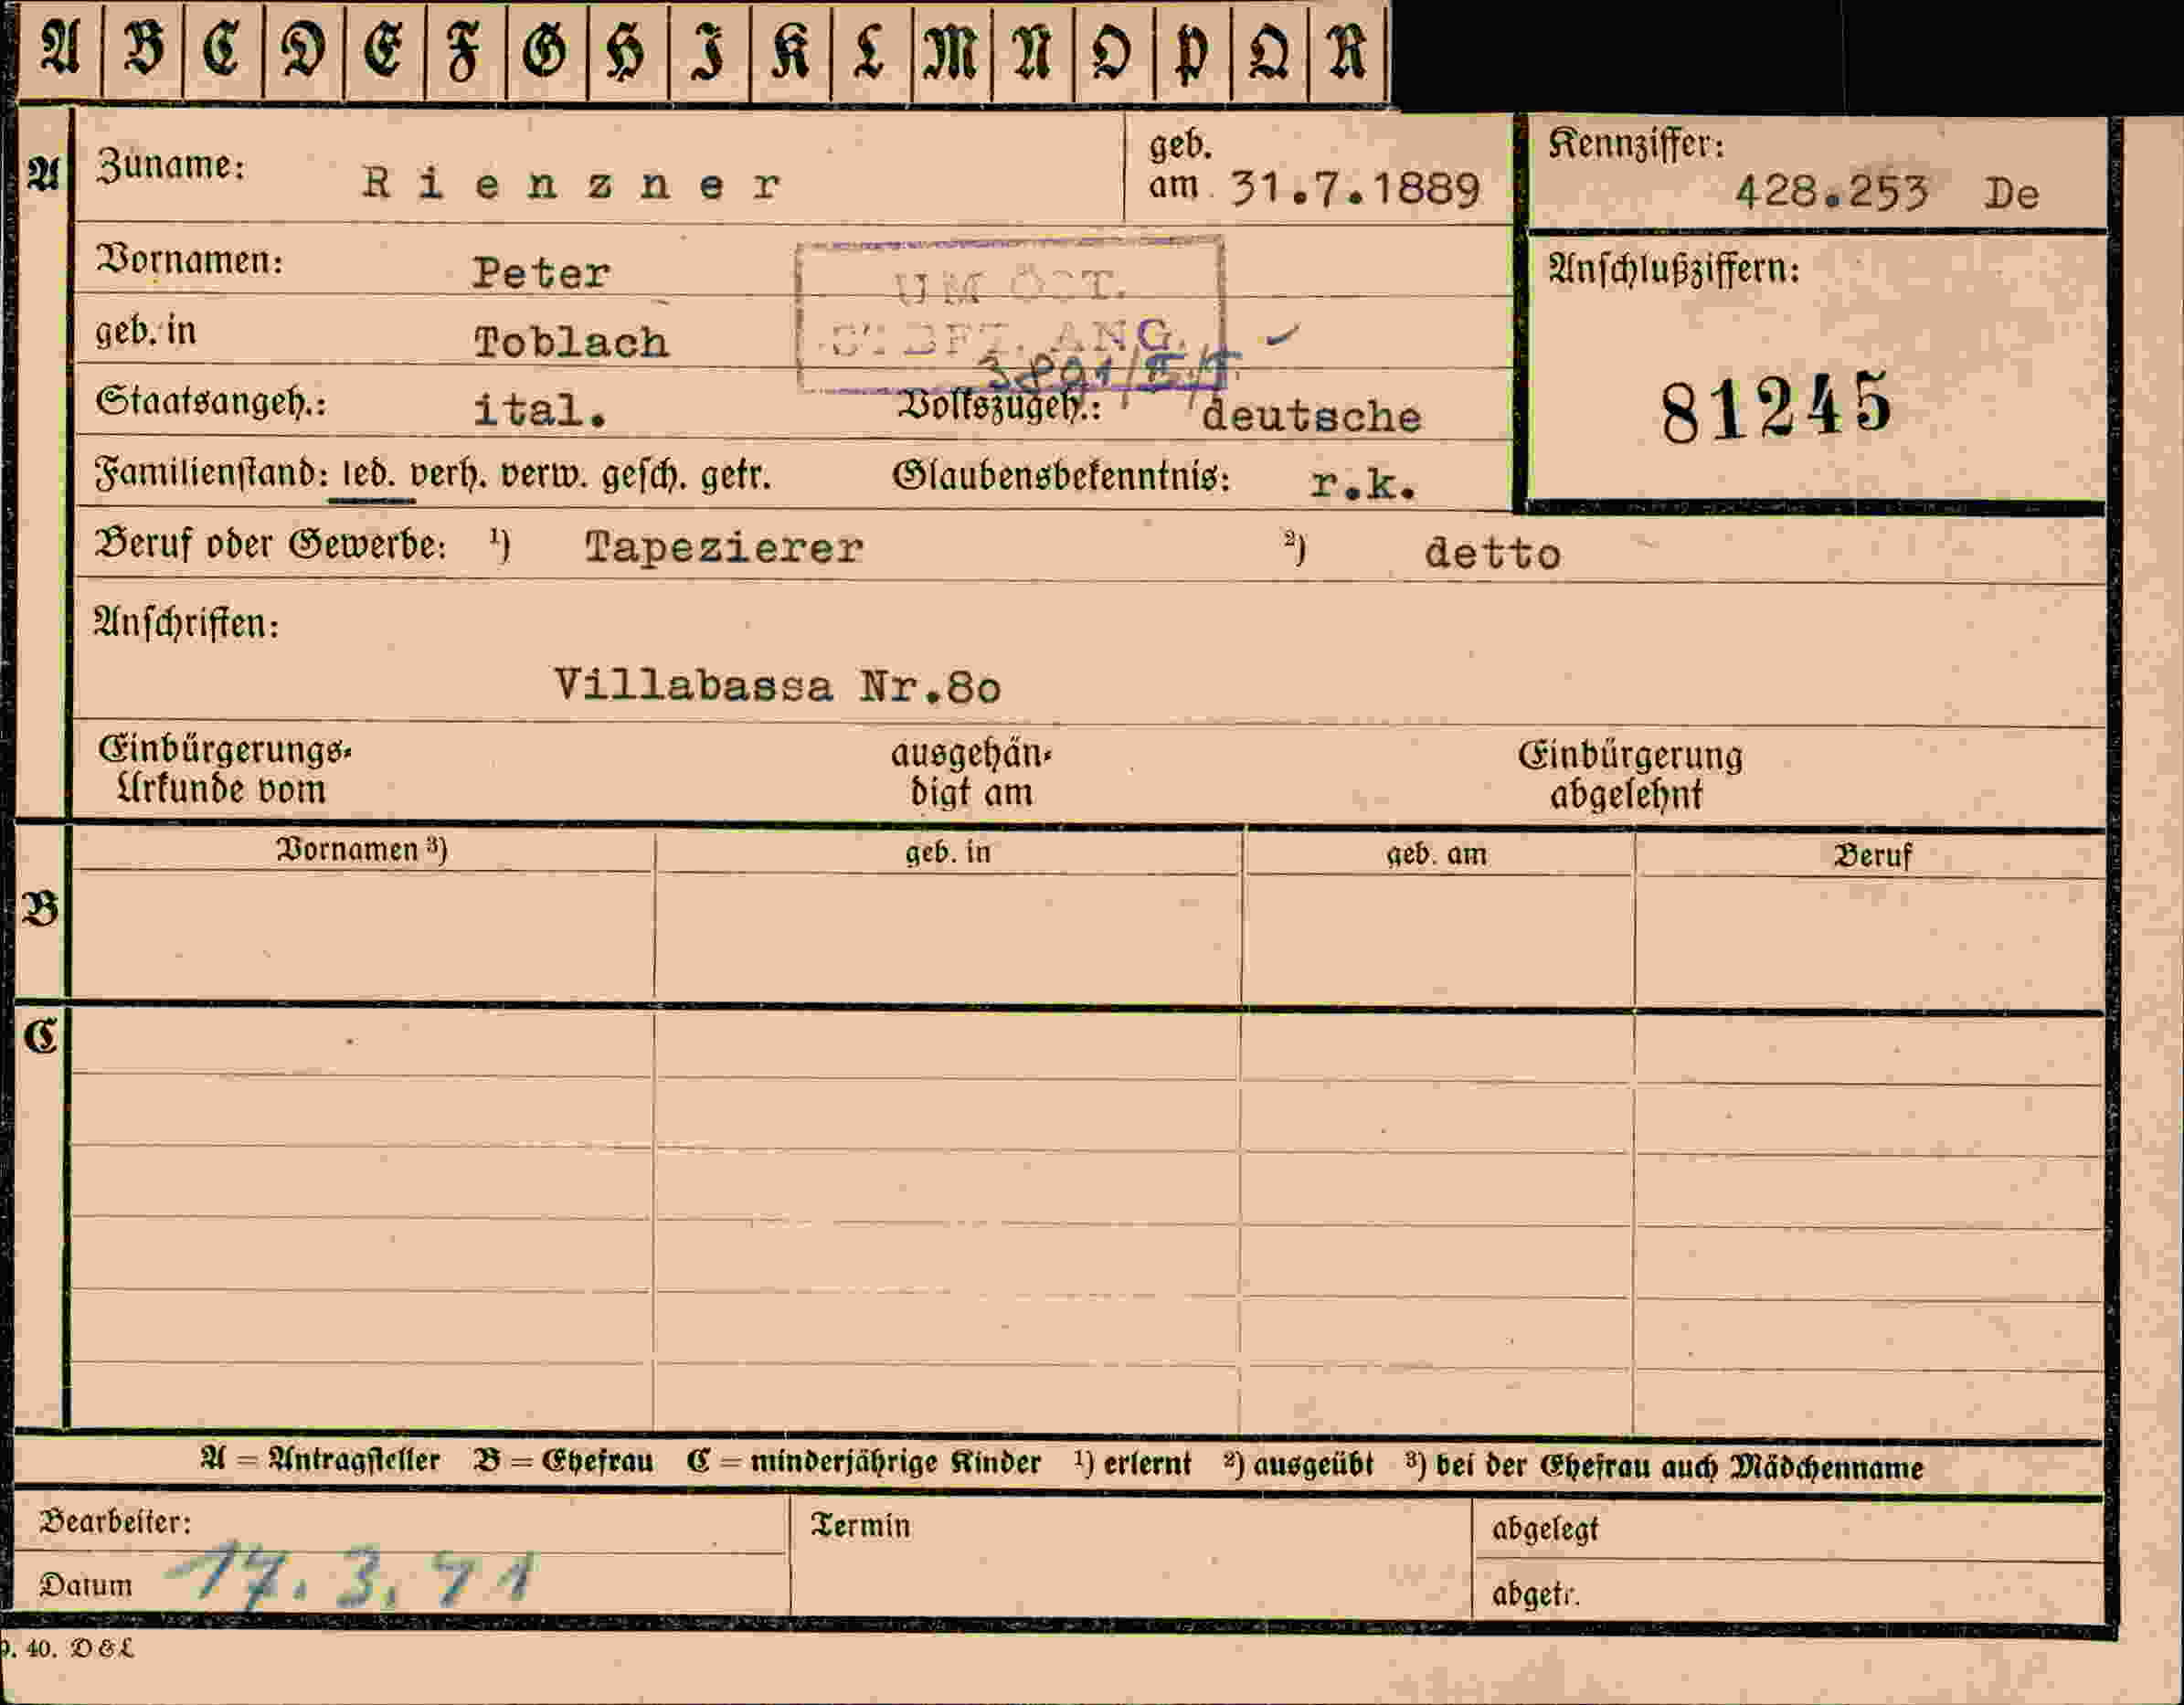 A B C D E F G H I K L M N O P Q R
A
Zuname: Rienzner
geb. am 31.7.1889
Kennziffer:
428.253 De
Vornamen: Peter
Anschlußziffern:
81245
geb. in Toblach
ANG.
Staatsangeh.: ital. Volkszugeh.: deutsche
Familienstand: led. verh. verw. gesch. getr. Glaubensbekenntnis: r.k.
Beruf oder Gewerbe: ¹) Tapezierer ²) detto
Anschriften:
Villabassa Nr.80
Einbürgerungs- ausgehän- Einbürgerung
Urkunde vom digt am abgelehnt
Vornamen ³) geb. in geb. am Beruf
B
C
A = Antragsteller B = Ehefrau C = minderjährige Kinder ¹) erlernt ²) ausgeübt ³) bei der Ehefrau auch Mädchenname
Bearbeiter: Termin abgelegt
Datum 17.3.41 abgetr.
40. D & L